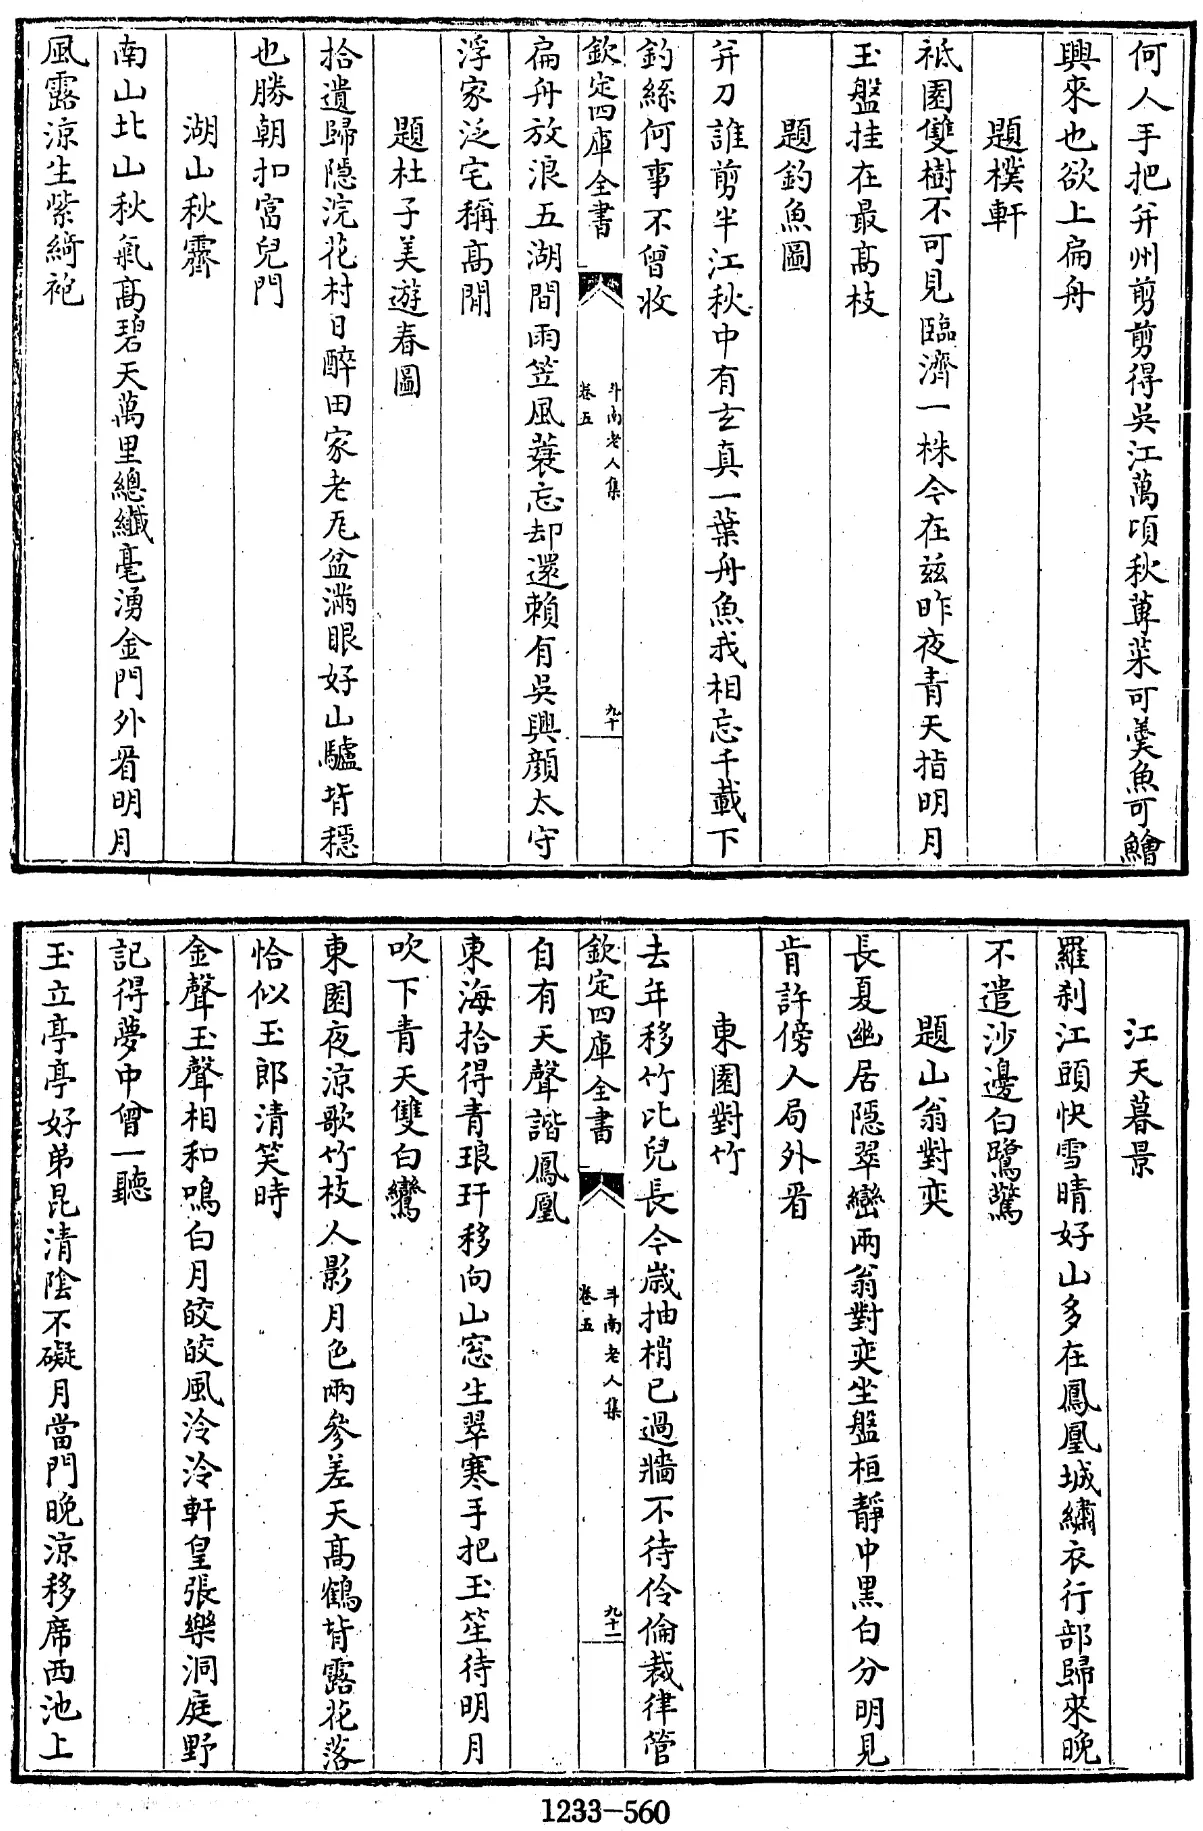 何人手把并州剪剪得吳江萬頃秋蓴菜可羹魚可鱠
興來也欲上扁舟
題樸軒
祇園雙樹不可見臨濟一株今在兹昨夜青天指明月
玉盤挂在最高枝
題釣魚圖
并刀誰剪半江秋中有玄真一葉舟魚我相忘千載下
釣絲何事不曾收
欽定四庫全書
斗南老人集
卷五
九十
扁舟放浪五湖間雨笠風蓑忘却還賴有吳興顔太守
浮家泛宅稱高閒
題杜子美遊春圖
拾遺歸隱浣花村日醉田家老瓦盆滿眼好山驢背穩
也勝朝扣富兒門
湖山秋霽
南山北山秋氣高碧天萬里總纖毫湧金門外看明月
風露涼生紫綺袍
江天暮景
羅刹江頭快雪晴好山多在鳳凰城繡衣行部歸來晚
不遣沙邊白鷺驚
題山翁對奕
長夏幽居隱翠巒兩翁對奕坐盤桓靜中黑白分明見
肯許傍人局外看
東園對竹
去年移竹比兒長今歲抽梢已過牆不待伶倫裁律管
欽定四庫全書
斗南老人集
卷五
九十一
自有天聲諧鳳凰
東海拾得青琅玕移向山窓生翠寒手把玉笙待明月
吹下青天雙白鸞
東園夜涼歌竹枝人影月色兩參差天高鶴背露花落
恰似王郎清笑時
金聲玉聲相和鳴白月皎皎風泠泠軒皇張樂洞庭野
記得夢中曾一聽
玉立亭亭好弟昆清陰不礙月當門晚涼移席西池上
1233-560